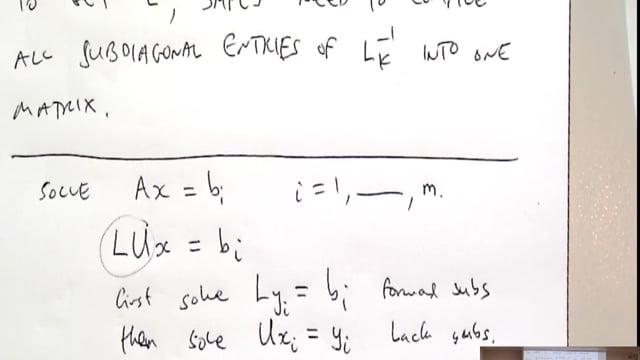 TO GET L, SIMPLY NEED TO
ALL SUBDIAGONAL ENTRIES OF L_K^{-1} INTO ONE
MATRIX.
SOLVE Ax = b_i i = 1, —, m.
LUx = b_i
first solve Ly_i = b_i forward subs
then solve Ux_i = y_i back subs.